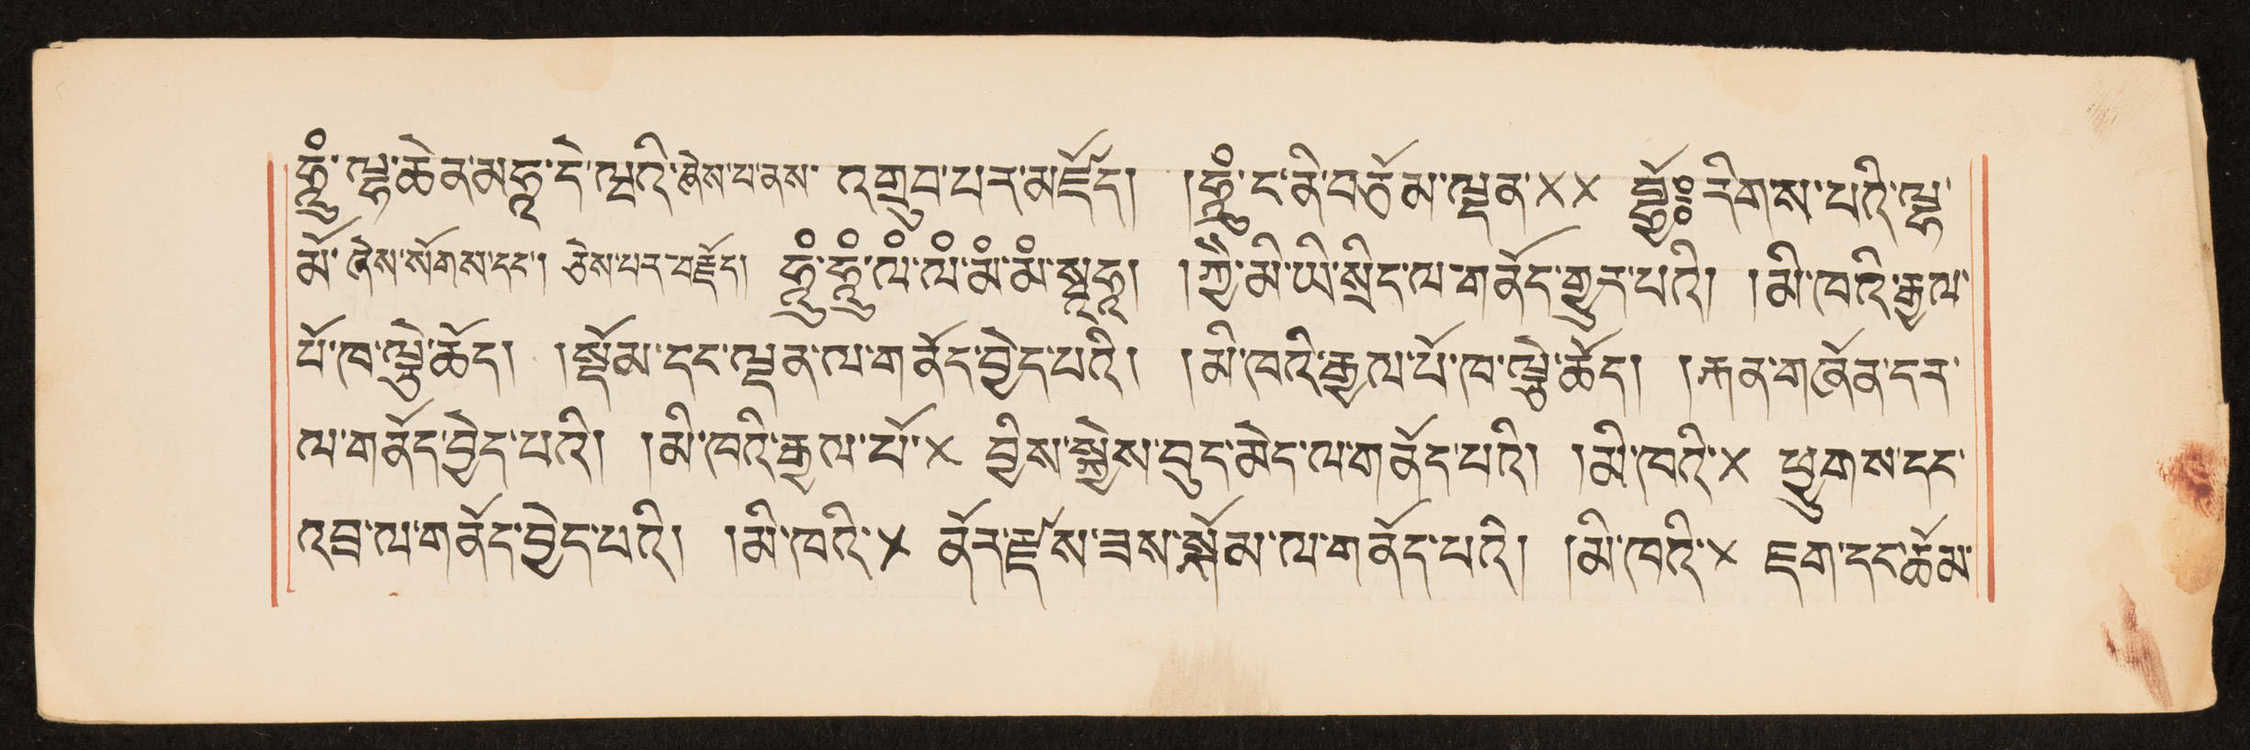 ཧཱུྃ་ལྷ་ཆེན་མཧཱ་དེ་ལྷའི་ཞེས་པ་ནས་ འགྲུབ་པར་མཛོད། །ཧཱུྃ་ང་ནི་བཅོམ་ལྡན་×× བྷྱོཿ རིགས་པའི་ལྷ་
མོ་ཞེས་སོགས་དང་། ཅེས་པར་བརྗོད། ཧཱུྃ་ཧཱུྃ་ལཾ་ལཾ་མཾ་མཾ་སྭཱཧཱ། །ཀྱཻ་མི་ཡི་སྲིད་ལ་གནོད་གྱུར་པའི། །མི་ཁའི་རྒྱལ་
པོ་ཁ་ལྷུ་ཆོད། །སྡོམ་དང་ལྡན་ལ་གནོད་བྱེད་པའི། །མི་ཁའི་རྒྱལ་པོ་ཁ་ལྷུ་ཆོད། །རྐན་གཞོན་དར་
ལ་གནོད་བྱེད་པའི། །མི་ཁའི་རྒྱལ་པོ་× བྱིས་སྐྱེས་བུད་མེད་ལ་གནོད་པའི། །མི་ཁའི་× ཕྱུགས་དང་
འབྲ་ལ་གནོད་བྱེད་པའི། །མི་ཁའི་× ནོར་རྫས་ཟས་སྐོམ་ལ་གནོད་པའི། །མི་ཁའི་× ཇག་དང་ཆོམ་